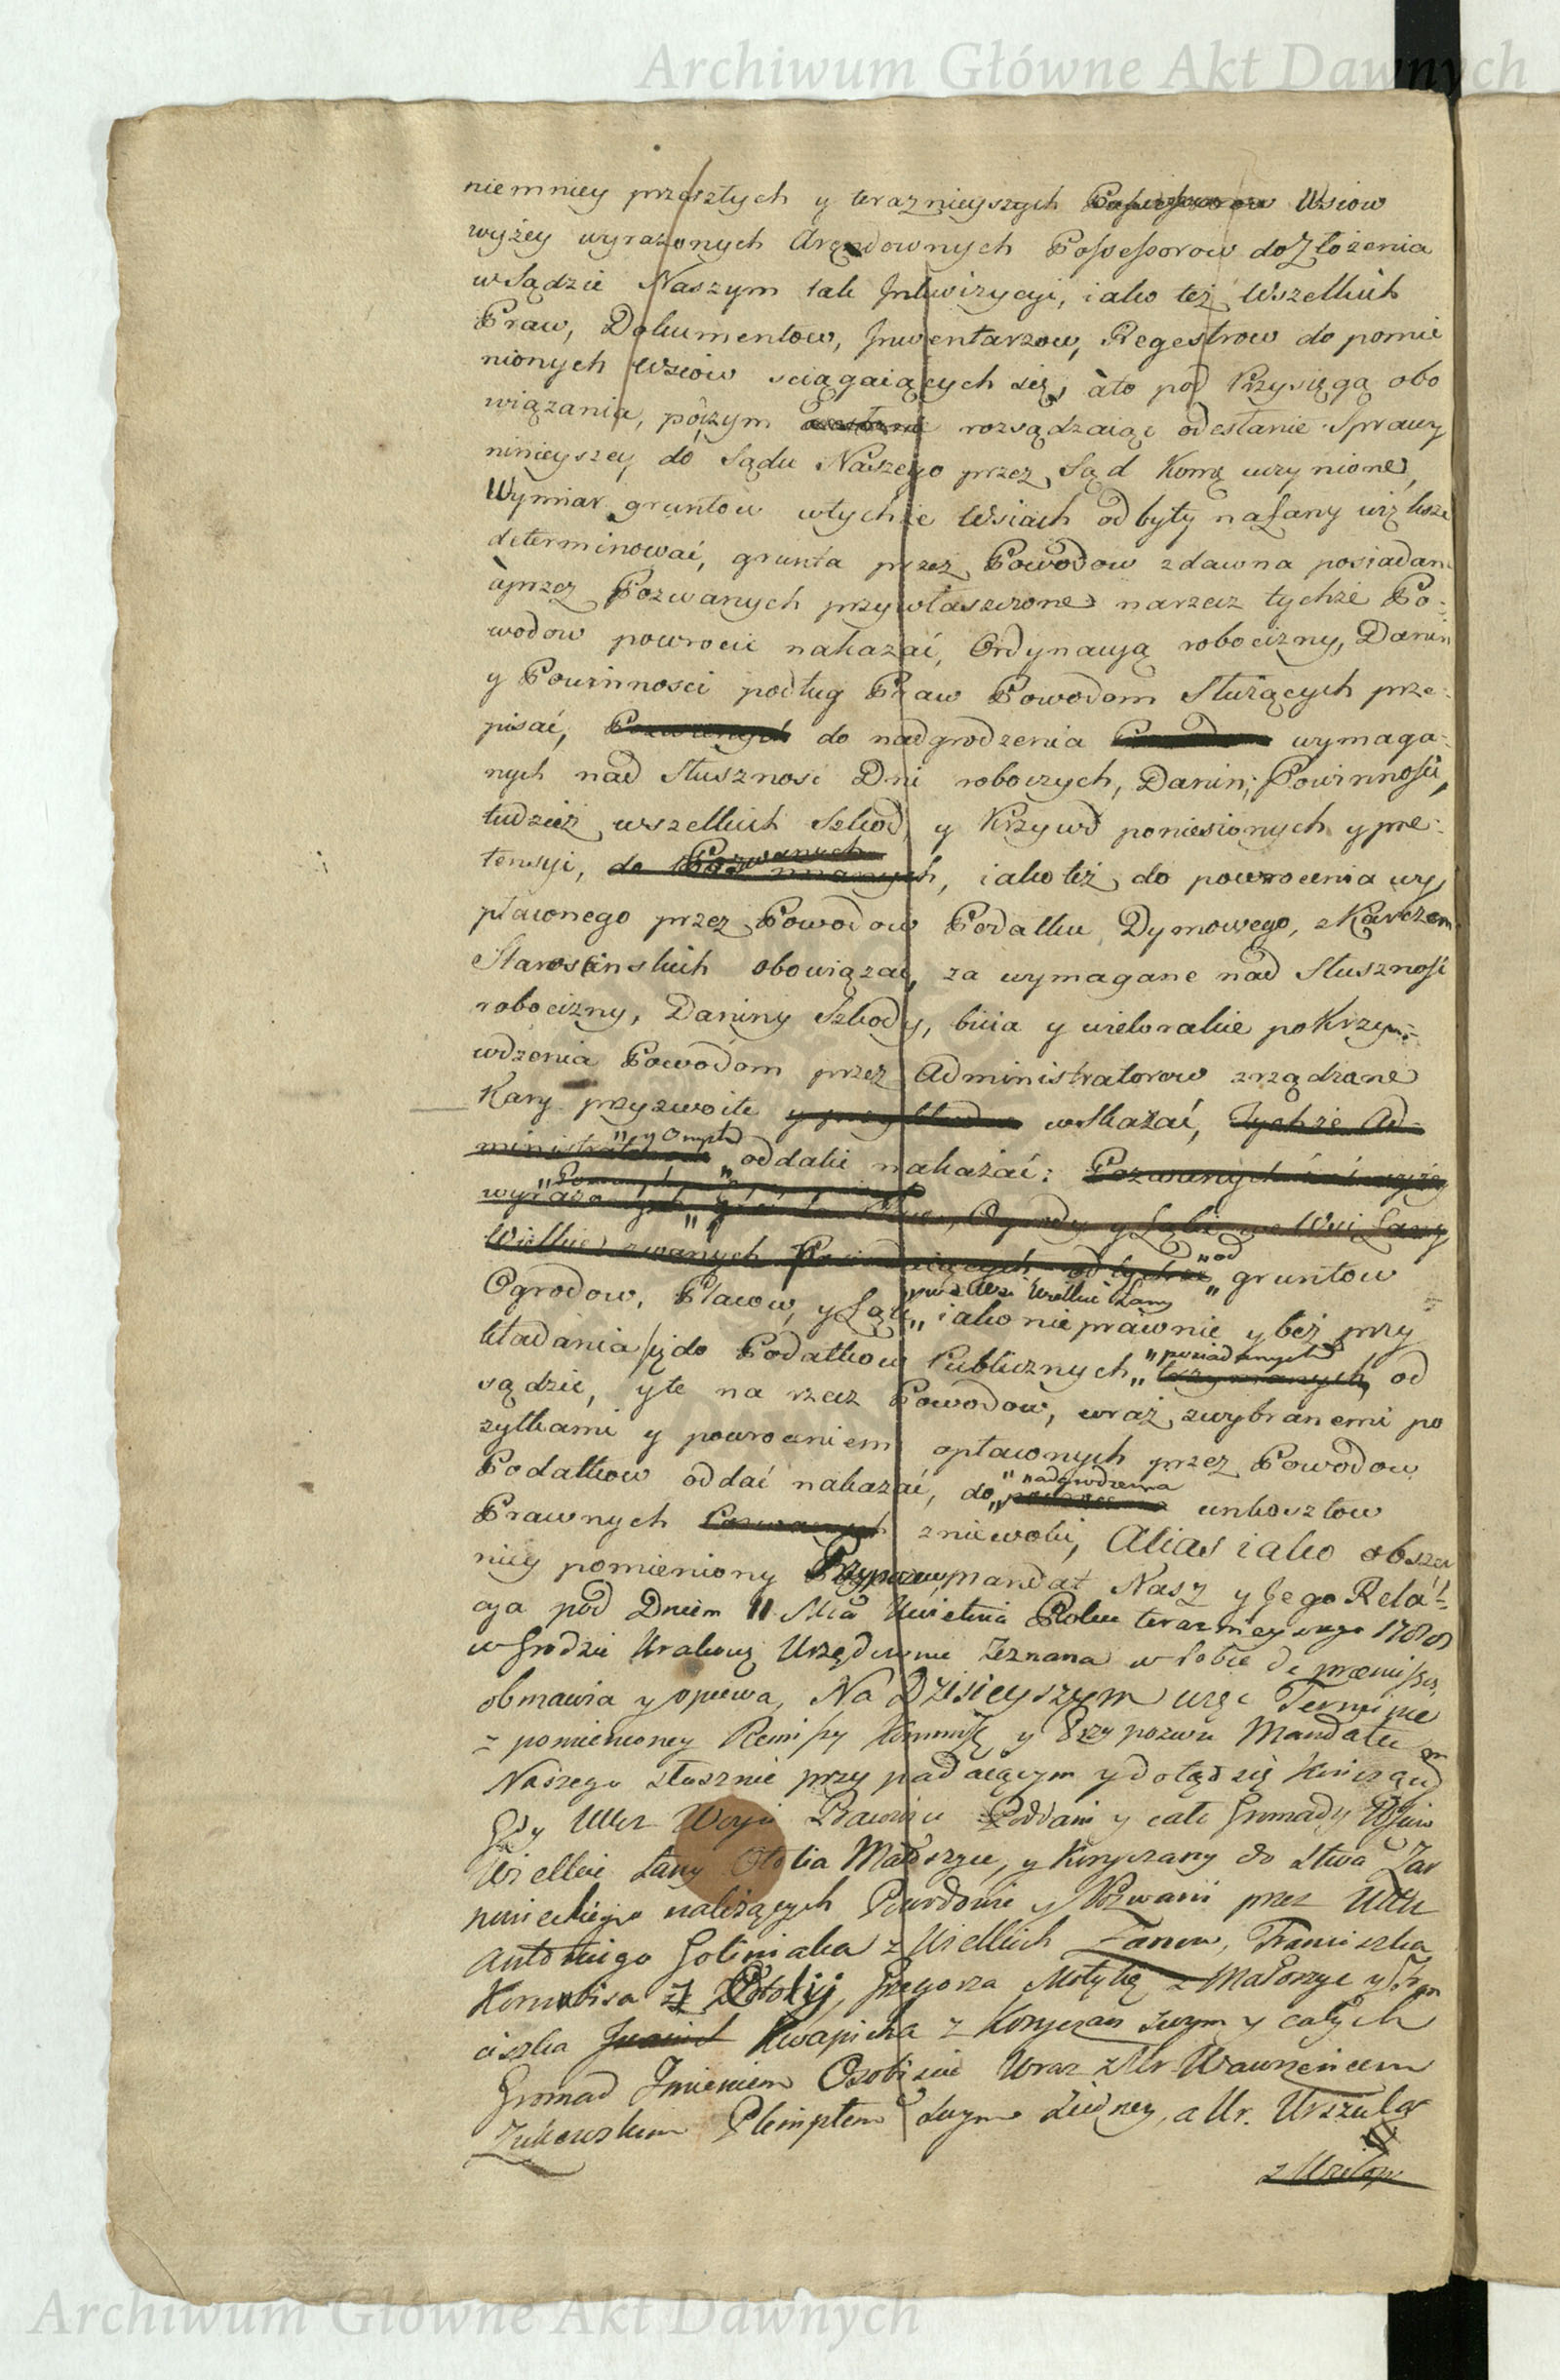 Archiwum Główne Akt Dawnych
niemniey przeszłych y teraznieyszych Possessorow Wsiow
wyżey wyrażonych Aręndownych Possessorow do Złożenia
w Sądzie Naszym tak Inkwizycyi, iako też Wszelkich
Praw, Dokumentow, Inwentarzow, Regestrow do pomie
nionych Wsiow sciągaiących się, àto pod Przysięgą obo
wiązania, poczym rozsądzaiąc odesłanie Sprawy
ninieyszey do Sądu Naszego przez Sąd Kom̄ą uczynione,
Wymiar gruntow wtychże Wsiach odbyty na Łany więksże
determinować, grunta przez Powodow zdawna posiadane
àprzez Pozwanych przywłaszczone narzecz tychże Po:
wodow powrocić nakazać, Ordynacyą robocizny, Danin
y Powinnosci podług Praw Powodom Służących prze:
pisać, Pozwanych do nadgrodzenia wymaga:
nych nad Słusznosć Dni roboczych, Danin, Powinnosci,
tudzież wszelkich Szkod y Krzywd poniesionych y pre:
tensyi, do Pozwanych, iakoteż do powrocenia wy
płaconego przez Powodow Podatku Dymowego, z Karczem
Starościnskich obowiązać, za wymagane nad Słusznosć
robocizny, Daniny Szkody, bicia y wielorakie pokrzy:
wdzenia Powodom przez Administratorow zrządzone
Kary przyzwoite wskazać, Tychże Ad:
ministratorow „y Onych „ oddalić nakazać: Pozwanych
wyrażonych Ogrody y Łąki we Wsi Łany
Wielkie zwanych od tychże „od „ gruntow
Ogrodow, Placow, y Łąk „we Wsi Wielkie Łany „ iako nieprawnie y bez przy
kładania się do Podatkow Publicznych „posiadanych „ trzymanych od
sądzić, yte na rzecz Powodow, wraz zwybranemi po
zytkami y powroceniem opłaconych przez Powodow
Podatkow oddać nakazać, do „nadgrodzenia „ unkosztow
Prawnych Pozwanych zniewolić, Alias iako obszer
niey pomieniony Przypozew, mandat Nasz y Jego Rela:
cya pod Dniem 11 Mca Kwietnia Roku teraznieyszego 1788
w Grodzie Krakow̄ Urzędownie Zeznana w sobie de præmissis
obmawia y opiewa, Na Dzisieyszym więc Terminie
z pomienioney Remissy Kommiss̄ y Przypozwu Mandatu
Naszego słusznie przypadaiącym ydotąd się kończącym
Gdy Wielkie Łany Otolia Małoszyce, y Koryczany do Stwa Żar
nowieckiego należących Powodowie y Pozwani przez
Antoniego Goliniaka z Wielkich Łanow, Franciszka
Kornobisa z Otolij, Grzegorza Motykę z Małoszyc y Fran
ciszka Kwapinka z Koryczan swym y całych
Gromad Imieniem Osobiscie Wraz z Ur Wawrzencem
Zukowskim Plenipotentem swym Zaedney, a Ur. Urszula
Archiwum Główne Akt Dawnych